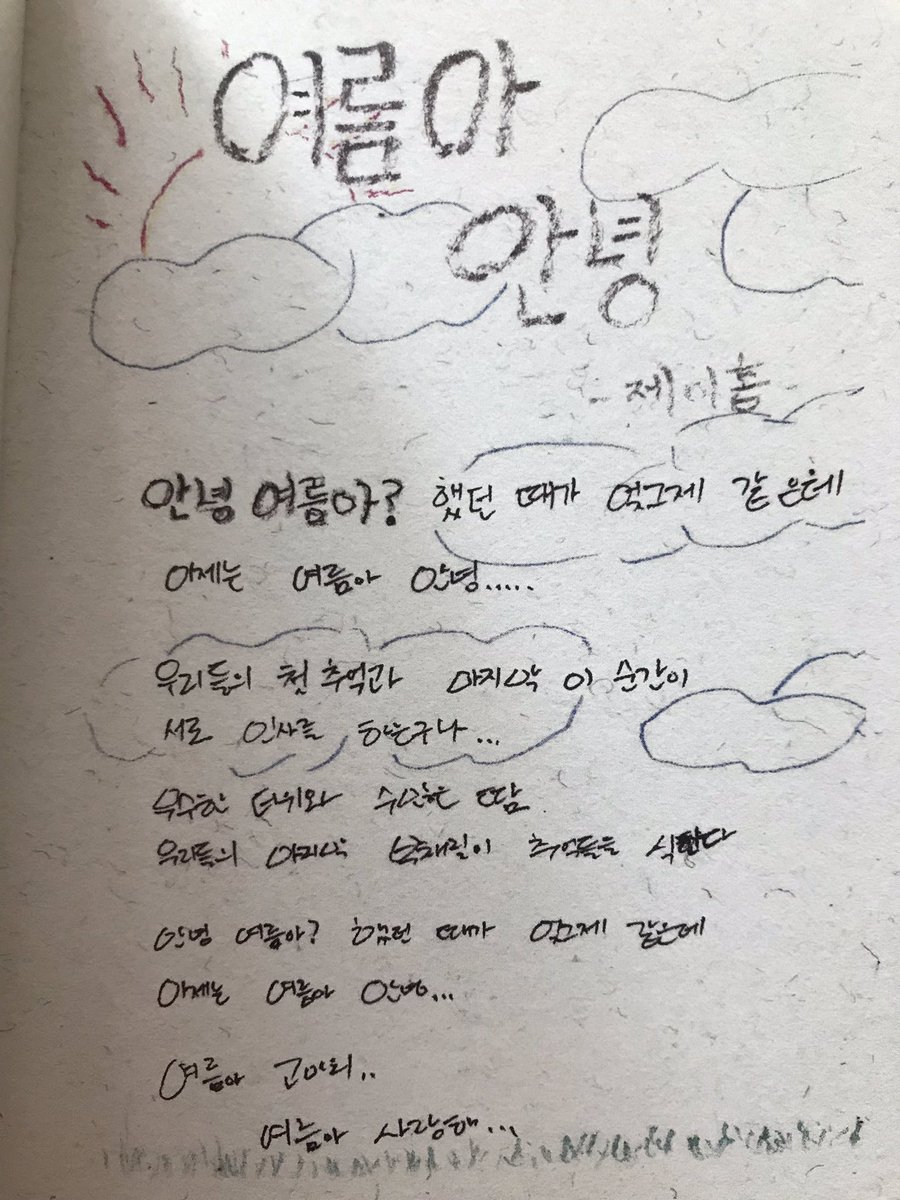 여름아
안녕
- 제이홉 -
안녕 여름아? 했던 때가 엊그제 같은데
이제는 여름아 안녕.....
우리들의 첫 추억과 마지막 이 순간이
서로 인사를 하는구나...
무수한 더위와 수많은 땀
우리들의 마지막 부채질이 추억들을 식힌다
안녕 여름아? 했던 때가 엊그제 같은데
이제는 여름아 안녕...
여름아 고마워..
여름아 사랑해...